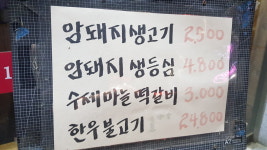 암돼지생고기 2,500
암돼지 생등심 4.800
수제마늘떡갈비 3.000
한우불고기 24,800
1